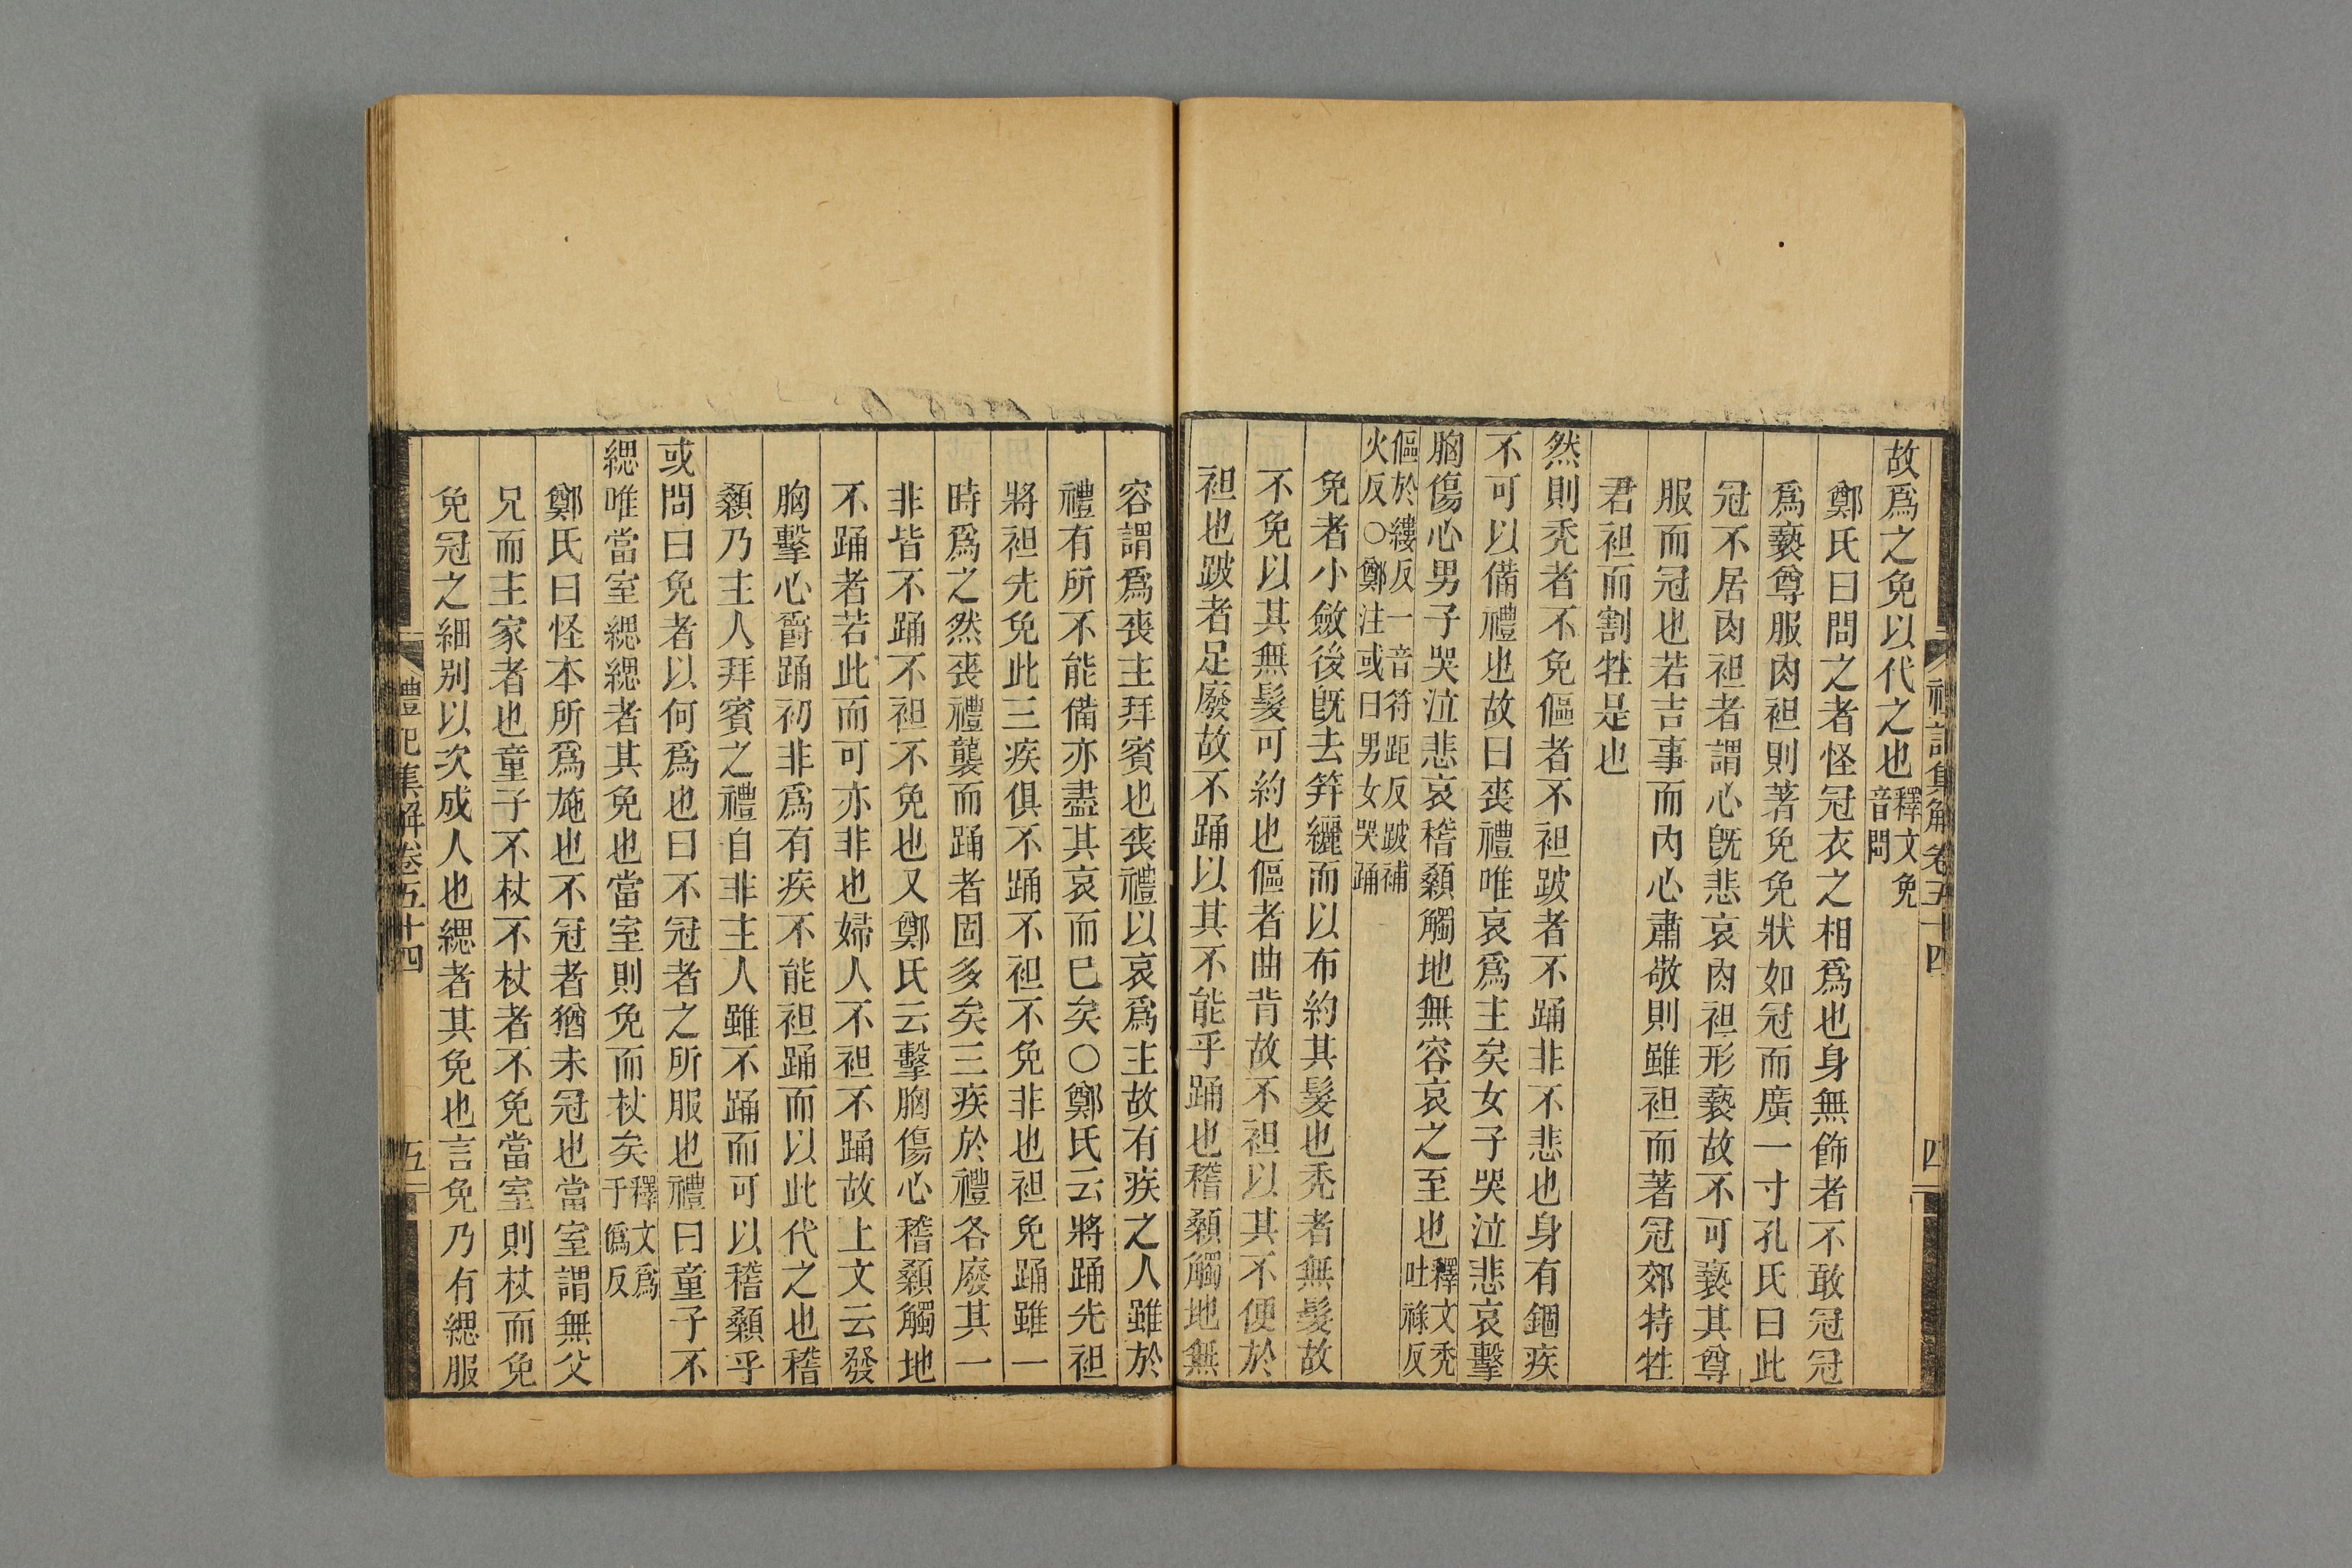 故爲之免以代之也釋文免音問
鄭氏曰問之者怪冠衣之相爲也身無飾者不敢冠冠
爲褻尊服肉袒則著免免狀如冠而廣一寸孔氏曰此
冠不居肉袒者謂心旣悲哀肉袒形褻故不可褻其尊
服而冠也若吉事而內心肅敬則雖袒而著冠郊特牲
君袒而割牲是也
然則禿者不免傴者不袒跛者不踊非不悲也身有錮疾
不可以備禮也故曰喪禮唯哀爲主矣女子哭泣悲哀擊
胸傷心男子哭泣悲哀稽顙觸地無容哀之至也釋文禿吐祿反
傴於縷反一音符距反跛補火反○鄭注或曰男女哭踊
免者小斂後旣去笄纚而以布約其髮也禿者無髮故
不免以其無髮可約也傴者曲背故不袒以其不便於
袒也跛者足廢故不踊以其不能乎踊也稽顙觸地無
禮記集解卷五十四 四
容謂爲喪主拜賓也喪禮以哀爲主故有疾之人雖於
禮有所不能備亦盡其哀而已矣○鄭氏云將踊先袒
將袒先免此三疾俱不踊不袒不免非也袒免踊雖一
時爲之然喪禮襲而踊者固多矣三疾於禮各廢其一
非皆不踊不袒不免也又鄭氏云擊胸傷心稽顙觸地
不踊者若此而可亦非也婦人不袒不踊故上文云發
胸擊心爵踊初非爲有疾不能袒踊而以此代之也稽
顙乃主人拜賓之禮自非主人雖不踊而可以稽顙乎
或問曰免者以何爲也曰不冠者之所服也禮曰童子不
緦唯當室緦緦者其免也當室則免而杖矣釋文爲于僞反
鄭氏曰怪本所爲施也不冠者猶未冠也當室謂無父
兄而主家者也童子不杖不杖者不免當室則杖而免
免冠之細別以次成人也緦者其免也言免乃有緦服
禮記集解卷五十四 五